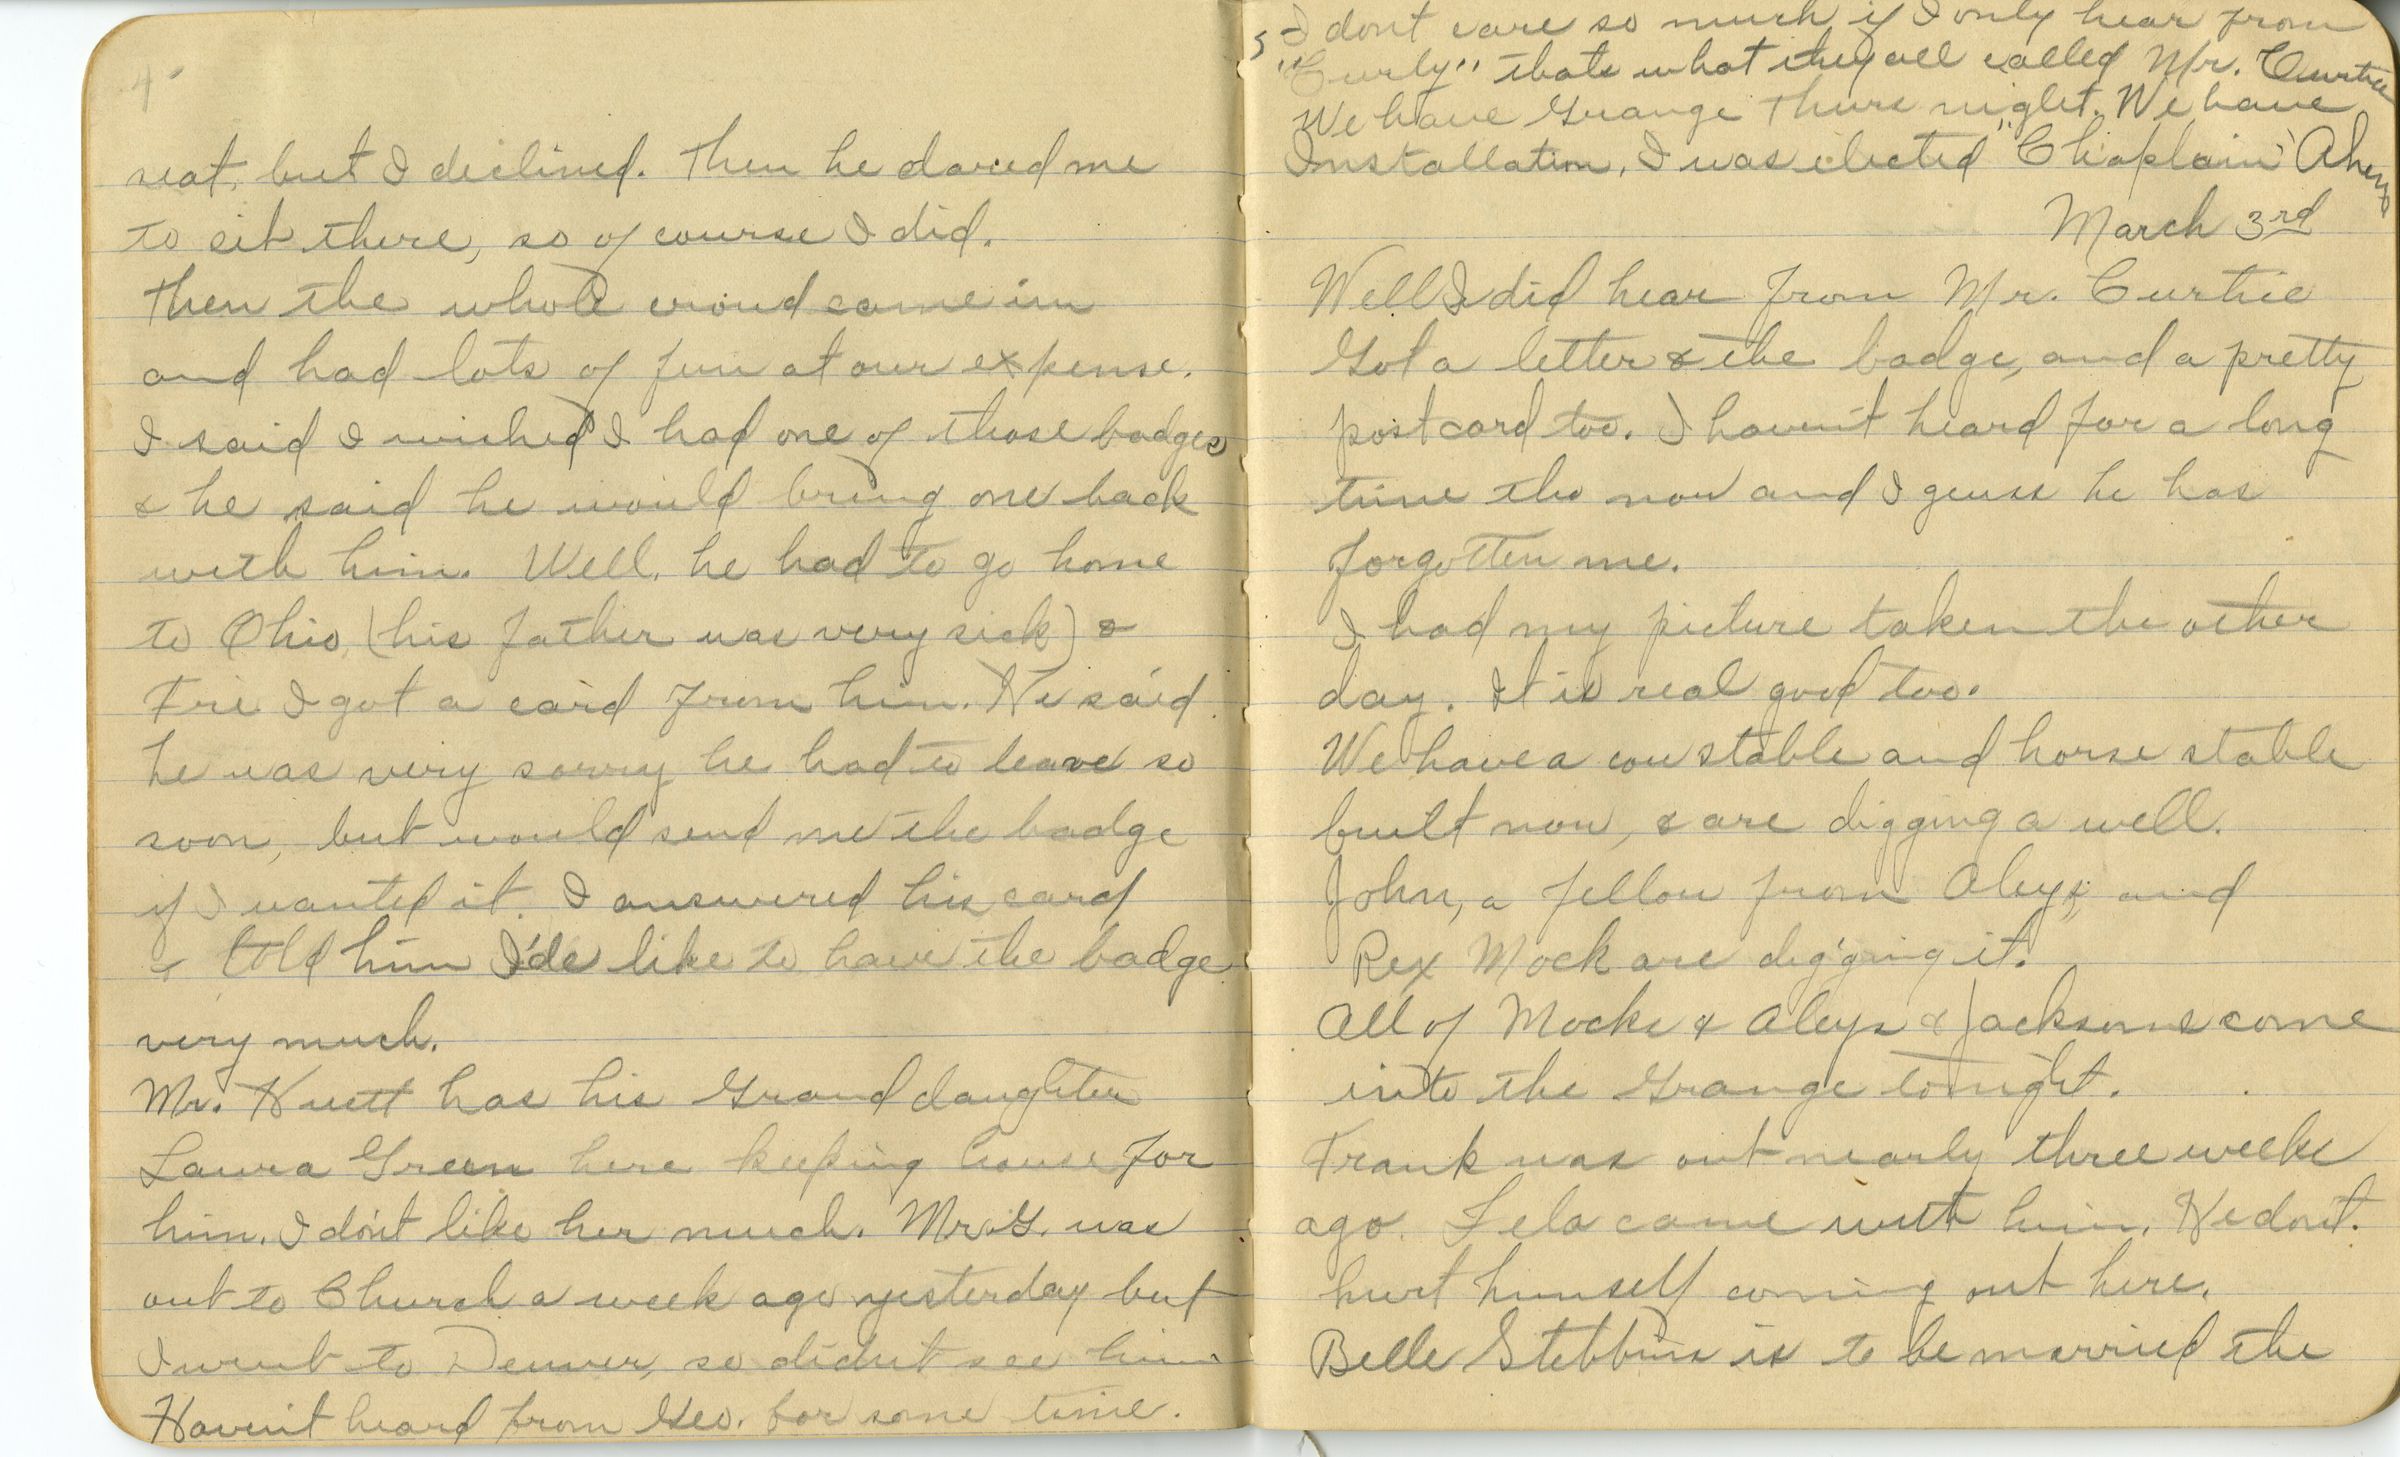 4
seat, but I declined. Then he dared me
to sit there, so of course I did.
Then the whole crowd came in
and had lots of fun at our expense.
I said I wished I had one of those badges
& he said he would bring one back
with him. Well, he had to go home
to Ohio, (his father was very sick) &
Fri I got a card from him. He said
he was very sorry he had to leave so
soon, but would send me the badge
if I wanted it. I answered his card
& told him I'de like to have the badge
very much.
Mr. Huett has his Grand daughter
Laura Green here keeping house for
him. I don't like her much. Mr. G. was
out to Church a week ago yesterday but
I went to Denver, so didn't see him
Haven't heard from Geo. for some time.
5 I dont care so much if I only hear from
"Curly" thats what they all called Mr. Curtice
We have Grange Thurs night. We have
Installation, I was elected "Chaplain" Ahem
March 3rd
Well I did hear from Mr. Curtice
Got a letter & the badge, and a pretty
postcard too. I haven't heard for a long
time tho now and I guess he has
forgotten me.
I had my picture taken the other
day. It is real good too.
We have a cow stable and horse stable
built now, & are digging a well.
John, a fellow from Aleys, and
Rex Mock are digging it.
All of Mocks & Aleys & Jacksons come
into the Grange tonight.
Frank was out nearly three weeks
ago. Lela came with him. He don't
hurt himself coming out here.
Belle Stebbins is to be married the